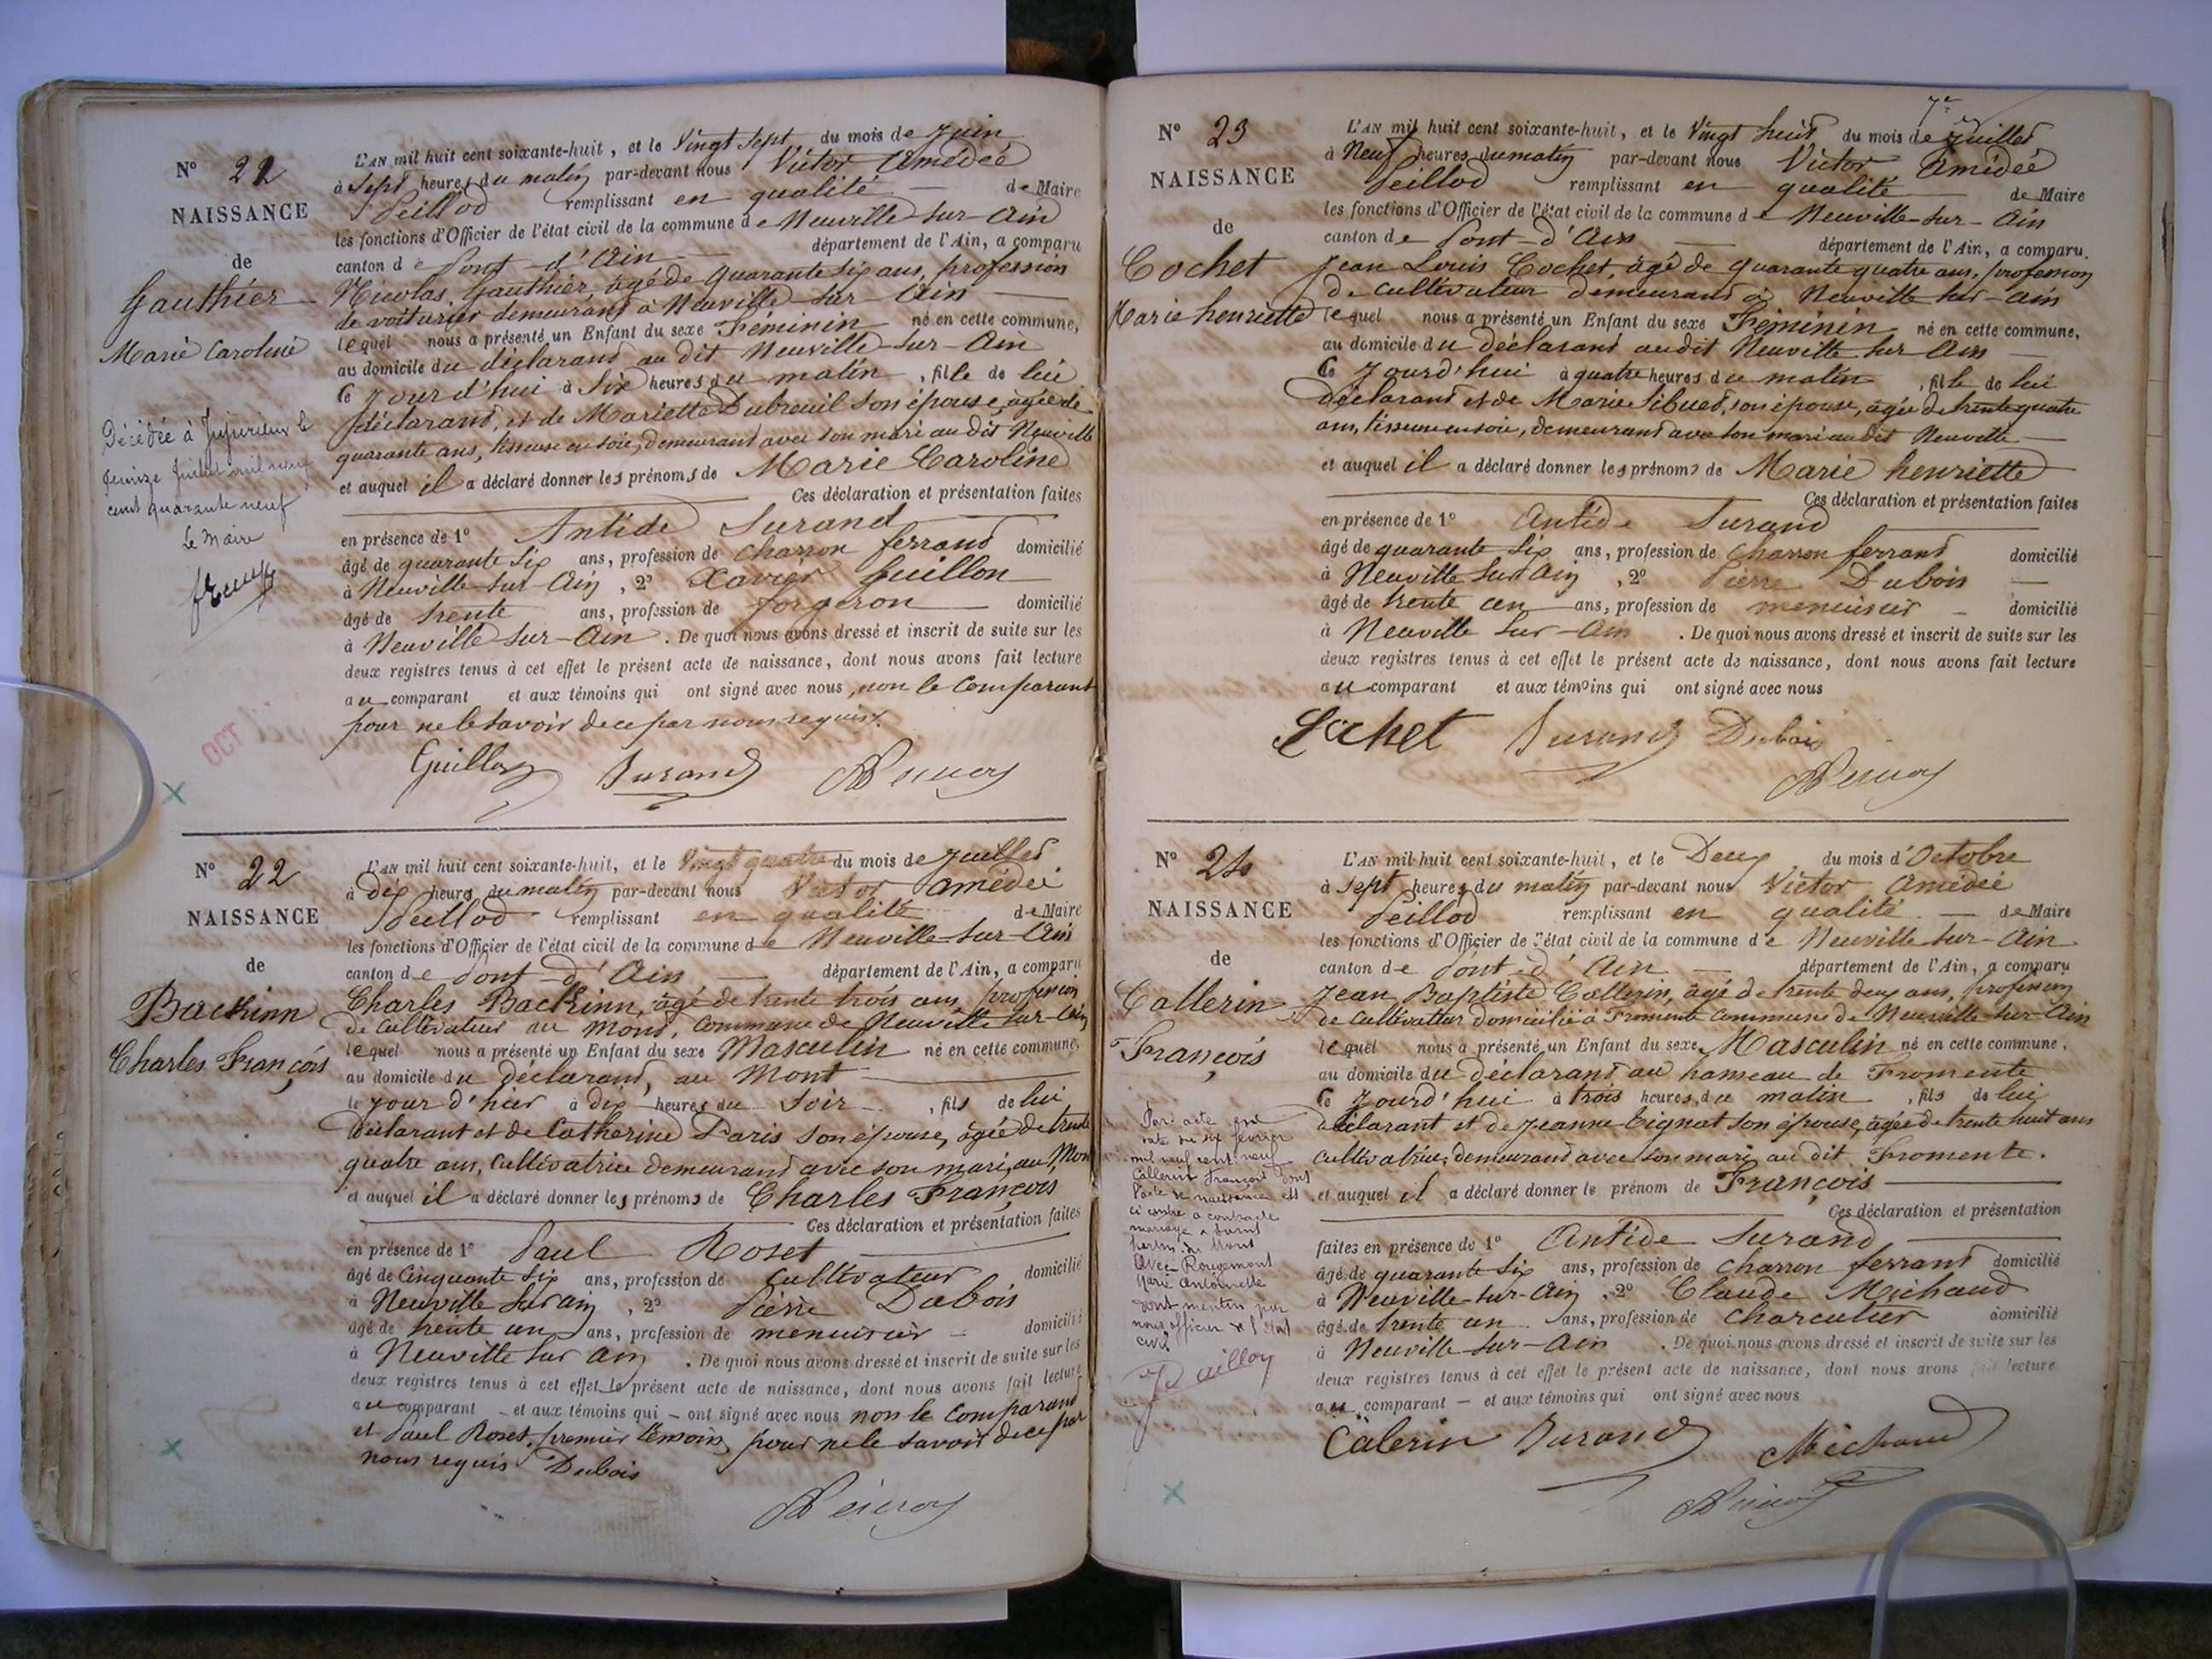 N° 21
NAISSANCE
de
Gauthier
Marie Caroline
Décédée à Jujurieux le
quinze juillet mil neuf
cent quarante neuf
Le Maire
L'AN mil huit cent soixante-huit, et le Vingt sept du mois de Juin
à Sept heures du matin par-devant nous Victor Amédée
Peillod remplissant en qualité de Maire
les fonctions d'Officier de l'état civil de la commune de Neuville-sur-Ain
canton de Pont-d'Ain département de l'Ain, a comparu
Nicolas Gauthier, âgé de quarante six ans, profession
de voiturier demeurant à Neuville-sur-Ain
lequel nous a présenté un Enfant du sexe Féminin né en cette commune,
au domicile du déclarant au dit Neuville-sur-Ain
Ce Jourd'hui à Six heures du matin, fille de lui
déclarant, et de Mariette Dubreuil son épouse, âgée de
quarante ans, tisseuse en soie, demeurant avec son mari au dit Neuville
et auquel il a déclaré donner les prénoms de Marie Caroline
Ces déclaration et présentation faites
en présence de 1° Antide Durand
âgé de quarante six ans, profession de charron ferrant domicilié
à Neuville-sur-Ain, 2° Xavier Guillon
âgé de trente ans, profession de forgeron domicilié
à Neuville sur-Ain. De quoi nous avons dressé et inscrit de suite sur les
deux registres tenus à cet effet le présent acte de naissance, dont nous avons fait lecture
au comparant et aux témoins qui ont signé avec nous, non le comparant
pour ne le savoir de ce par nous requis.
OCT
Guillon Durand
N° 22
NAISSANCE
de
Backinn
Charles François
L'AN mil huit cent soixante-huit, et le Vingt quatre du mois de Juillet
à dix heures du matin par-devant nous Victor Amédée
Peillod remplissant en qualité de Maire
les fonctions d'Officier de l'état civil de la commune de Neuville-sur-Ain
canton de Pont-d'Ain département de l'Ain, a comparu
Charles Backinn, âgé de trente trois ans, profession
de Cultivateur au Mont, commune de Neuville-sur-Ain
lequel nous a présenté un Enfant du sexe Masculin né en cette commune,
au domicile du déclarant, au Mont
le jour d'hier à dix heures du Soir, fils de lui
déclarant et de Catherine Paris son épouse, âgée de trente
quatre ans, cultivatrice demeurant avec son mari, au Mont
et auquel il a déclaré donner les prénoms de Charles François
Ces déclaration et présentation faites
en présence de 1° Paul Roset
âgé de Cinquante six ans, profession de Cultivateur domicilié
à Neuville sur ain, 2° Pierre Dubois
âgé de trente un ans, profession de menuisier domicilié
à Neuville sur ain. De quoi nous avons dressé et inscrit de suite sur les
deux registres tenus à cet effet le présent acte de naissance, dont nous avons fait lecture
au comparant et aux témoins qui ont signé avec nous non le comparant
et Paul Roset, premier témoin, pour ne le savoir de ce par
nous requis Dubois
N° 23
NAISSANCE
de
Cochet
Marie henriette
7e
L'AN mil huit cent soixante-huit, et le Vingt huit du mois de Juillet
à Neuf heures du matin par-devant nous Victor Amédée
Peillod remplissant en qualité de Maire
les fonctions d'Officier de l'état civil de la commune de Neuville-sur-Ain
canton de Pont-d'Ain département de l'Ain, a comparu.
Jean Louis Cochet, âgé de quarante quatre ans, profession
de cultivateur demeurant à Neuville sur-Ain
lequel nous a présenté un Enfant du sexe Féminin né en cette commune,
au domicile du déclarant audit Neuville sur Ain
Ce Jourd'hui à quatre heures du matin, fille de lui
déclarant et de Marie Sibuet, son épouse, âgée de trente quatre
ans, tisseuse en soie, demeurant avec son mari au dit Neuville
et auquel il a déclaré donner les prénoms de Marie henriette
Ces déclaration et présentation faites
en présence de 1° Antide Durand
âgé de quarante six ans, profession de Charron ferrant domicilié
à Neuville sur Ain, 2° Pierre Dubois
âgé de trente un ans, profession de menuisier domicilié
à Neuville sur-Ain. De quoi nous avons dressé et inscrit de suite sur les
deux registres tenus à cet effet le présent acte de naissance, dont nous avons fait lecture
au comparant et aux témoins qui ont signé avec nous
Cochet Durand Dubois
N° 24
NAISSANCE
de
Callerin
François
Par acte
en date du six février
mil neuf cent neuf
Callerin François dont
l'acte de naissance est
ci contre a contracté
mariage à Saint
Martin du Mont
avec Rougemont
Marie Antoinette
dont mention par
nous officier de l'état
civil
L'AN mil huit cent soixante-huit, et le Deux du mois d'Octobre
à Sept heures du matin par-devant nous Victor Amédée
Peillod remplissant en qualité de Maire
les fonctions d'Officier de l'état civil de la commune de Neuville sur-Ain
canton de Pont-d'Ain département de l'Ain, a comparu
Jean Baptiste Callerin, âgé de trente deux ans, profession
de cultivateur domicilié à Fromente commune de Neuville-sur-Ain
lequel nous a présenté un Enfant du sexe Masculin né en cette commune,
au domicile du déclarant au hameau de Fromente
Ce Jourd'hui à trois heures du matin, fils de lui
déclarant et de Jeanne Eignat son épouse, âgée de trente huit ans
cultivatrice, demeurant avec son mari au dit Fromente.
et auquel il a déclaré donner le prénom de François
Ces déclaration et présentation
faites en présence de 1° Antide Durand
âgé de quarante six ans, profession de Charron ferrant domicilié
à Neuville-sur-Ain, 2° Claude Michaud
âgé de trente un ans, profession de charcutier domicilié
à Neuville-sur-Ain. De quoi nous avons dressé et inscrit de suite sur les
deux registres tenus à cet effet le présent acte de naissance, dont nous avons fait lecture
au comparant et aux témoins qui ont signé avec nous
Calerin Durand Michaud